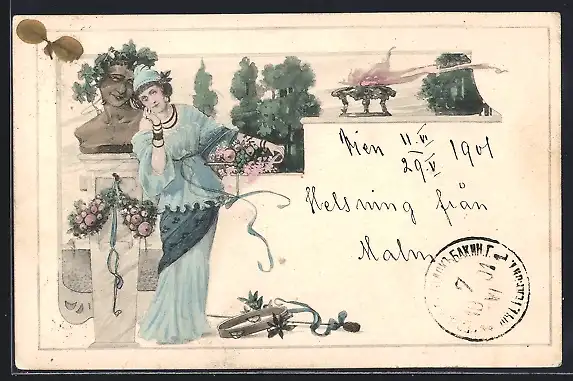 Wien 11/VI 29/V 1901
Helsning från
Malm
БАКИН. Г.